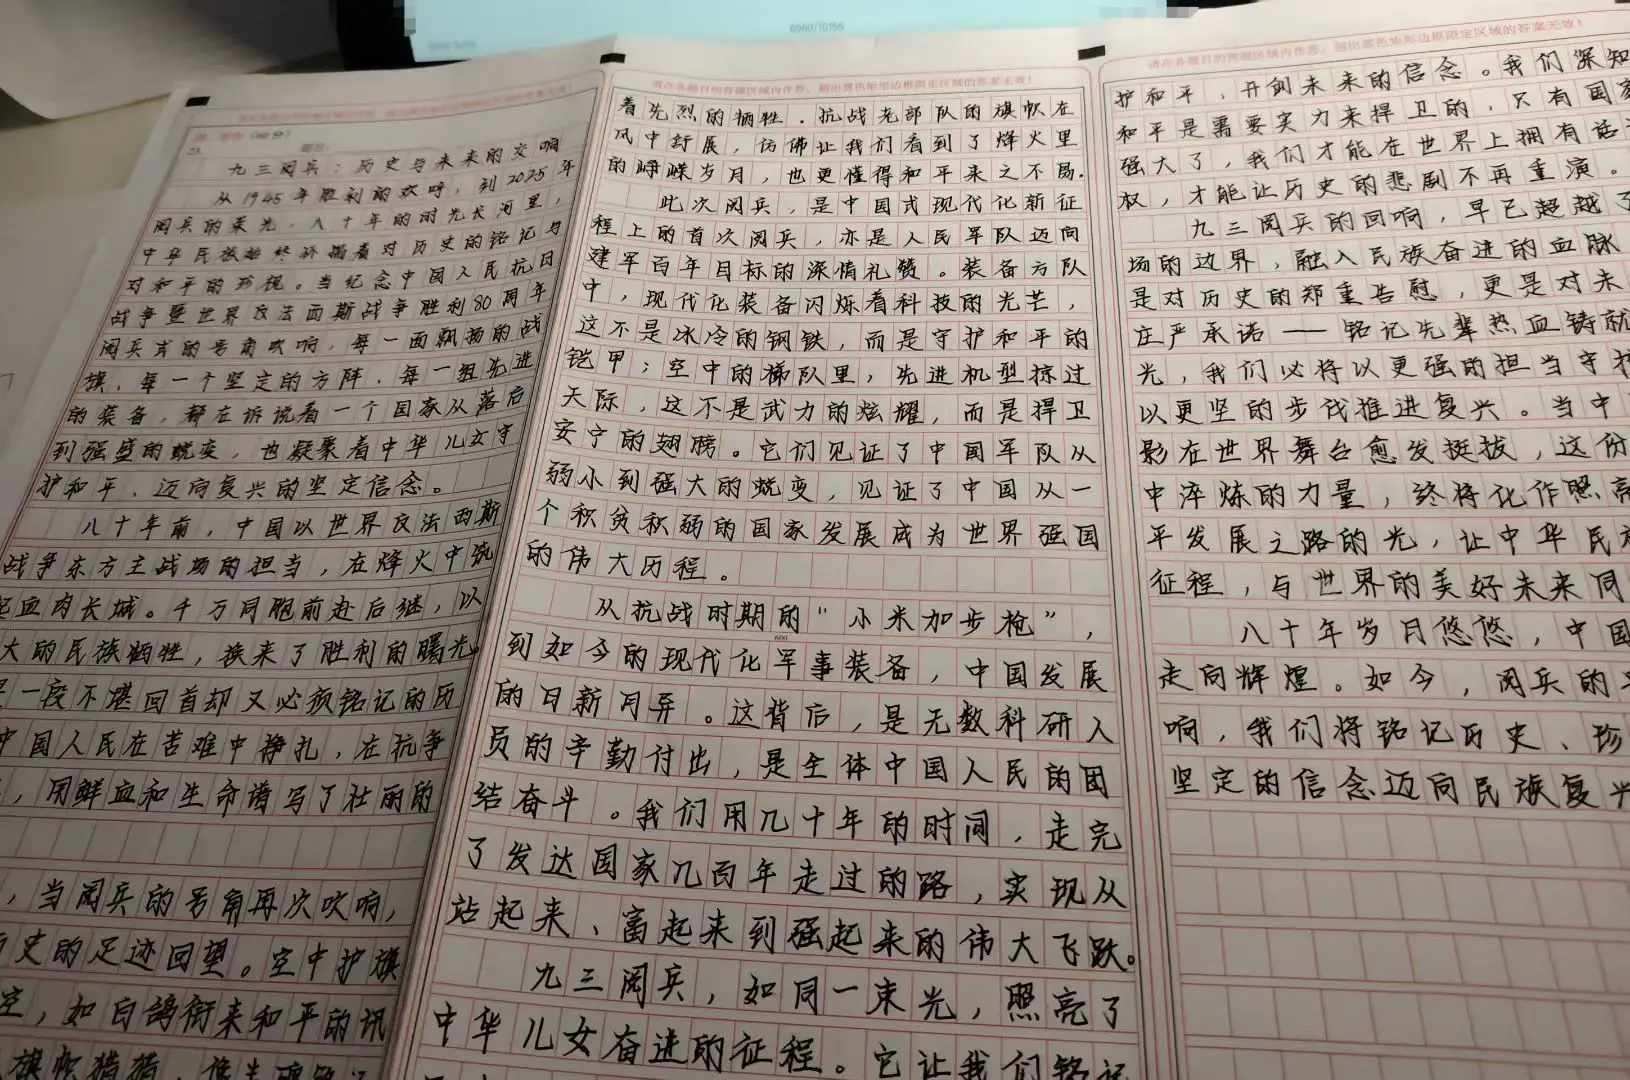 6960/10156
请在各题目的答题区域内作答，超出黑色矩形边框限定区域的答案无效！
四、写作（60分）
23.
九三阅兵：历史与未来的交响
从1945年胜利的欢呼，到2025年
阅兵的荣光，八十年的时光长河里，
中华民族始终 着对历史的铭记与
对和平的珍视。当纪念中国人民抗日
战争暨世界反法西斯战争胜利80周年
阅兵式的号角吹响，每一面飘扬的战
旗、每一个坚定的方阵、每一组先进
的装备，都在诉说着一个国家从落后
到强盛的蜕变，也凝聚着中华儿女守
护和平、迈向复兴的坚定信念。
八十年前，中国以世界反法西斯
战争东方主战场的担当，在烽火中筑
起血肉长城。千万同胞前赴后继，以
大的民族牺牲，换来了胜利的曙光。
是一段不堪回首却又必须铭记的历
中国人民在苦难中挣扎，在抗争
，用鲜血和生命谱写了壮丽的
，当阅兵的号角再次吹响，
历史的足迹回望。空中护旗
，如白鸽衔来和平的讯
旗帜猎猎，
请在各题目的答题区域内作答，超出黑色矩形边框限定区域的答案无效！
着先烈的牺牲。抗战老部队的旗帜在
风中舒展，仿佛让我们看到了烽火里
的峥嵘岁月，也更懂得和平来之不易。
此次阅兵，是中国式现代化新征
程上的首次阅兵，亦是人民军队迈向
建军百年目标的深情礼赞。装备方队
中，现代化装备闪烁着科技的光芒，
这不是冰冷的钢铁，而是守护和平的
铠甲；空中的梯队里，先进机型掠过
天际，这不是武力的炫耀，而是捍卫
安宁的翅膀。它们见证了中国军队从
弱小到强大的蜕变，见证了中国从一
个积贫积弱的国家发展成为世界强国
的伟大历程。
从抗战时期的“小米加步枪”，
600
到如今的现代化军事装备，中国发展
的日新月异。这背后，是无数科研人
员的辛勤付出，是全体中国人民的团
结奋斗。我们用几十年的时间，走完
了发达国家几百年走过的路，实现从
站起来、富起来到强起来的伟大飞跃。
九三阅兵，如同一束光，照亮了
中华儿女奋进的征程。它让我们铭记
请在各题目的答题区域内作答，超出黑色矩形边框限定区域的答案无效！
护和平，开创未来的信念。我们深知
和平是需要实力来捍卫的，只有国家
强大了，我们才能在世界上拥有话语
权，才能让历史的悲剧不再重演。
九三阅兵的回响，早已超越了
场的边界，融入民族奋进的血脉
是对历史的郑重告慰，更是对未
庄严承诺——铭记先辈热血铸就
光，我们必将以更强的担当守护
以更坚的步伐推进复兴。当中
影在世界舞台愈发挺拔，这份
中淬炼的力量，终将化作照亮
平发展之路的光，让中华民族
征程，与世界的美好未来同
八十年岁月悠悠，中国
走向辉煌。如今，阅兵的
响，我们将铭记历史、珍
坚定的信念迈向民族复兴